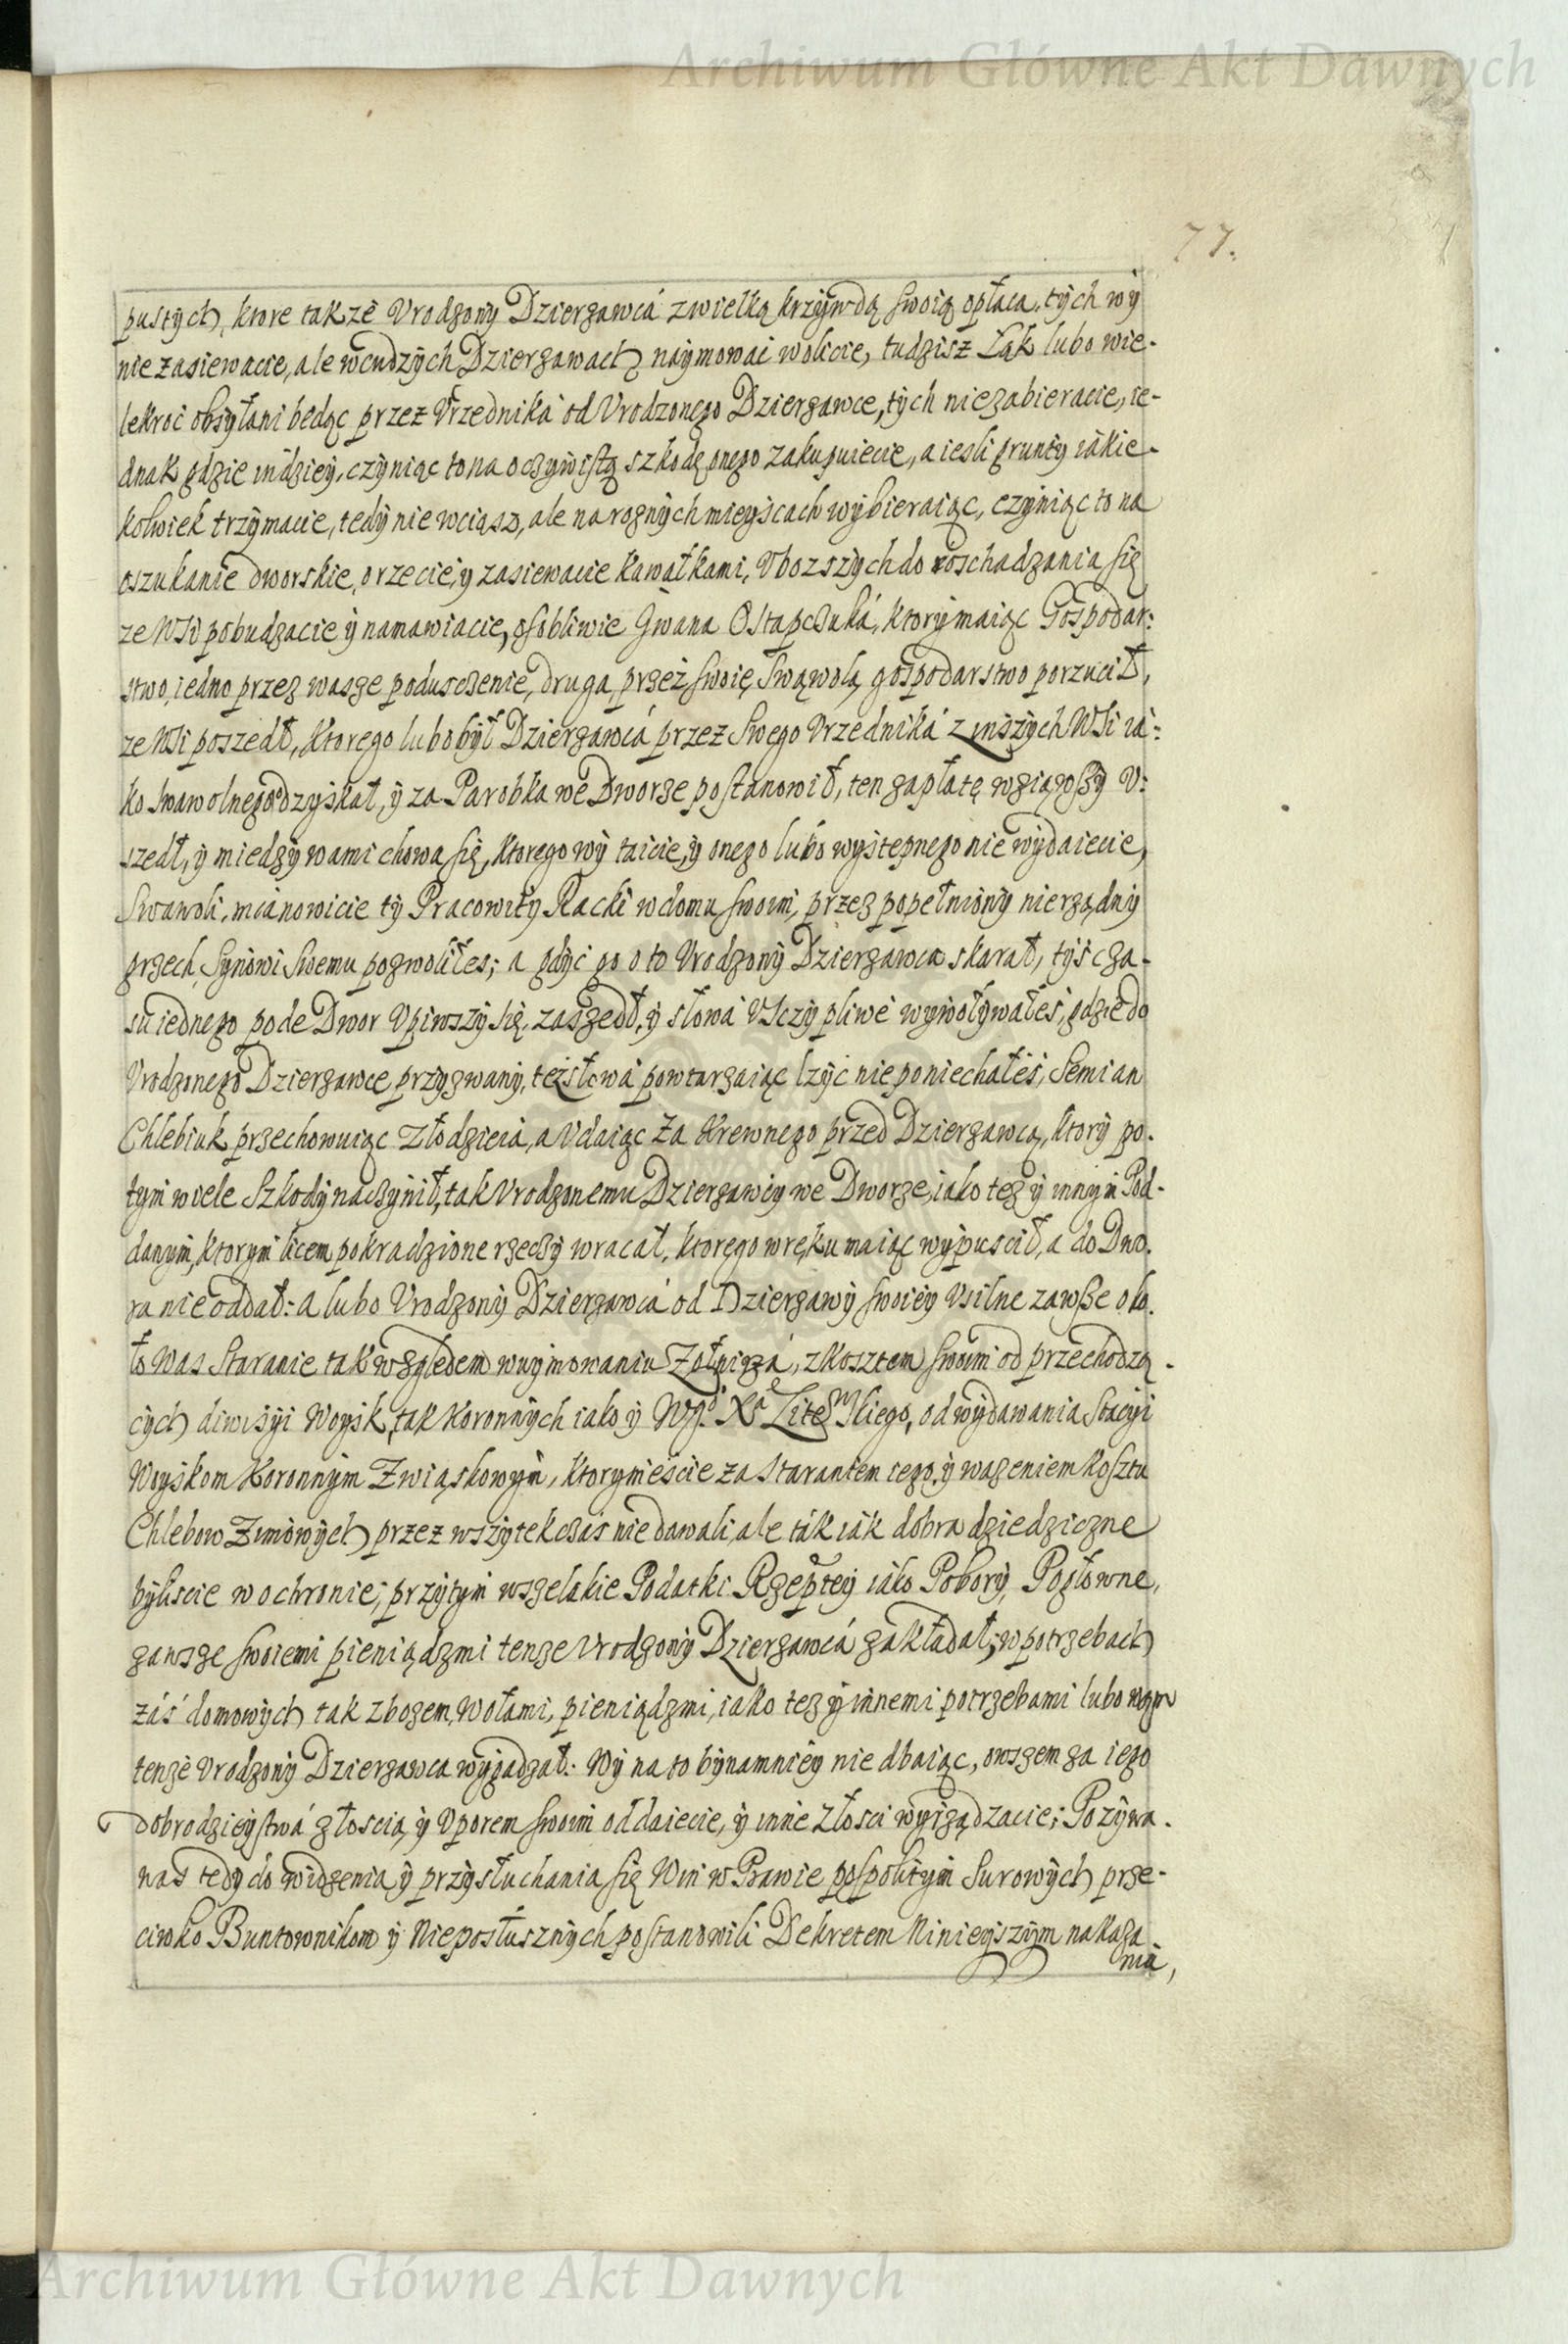 Archiwum Główne Akt Dawnych
77.
pustych, ktore takze Vrodzony Dzierzawcá z wielką krzywdą swoią opłaca, tych wy
nie zasiewacie, ale w cudzych Dzierzawach naymowac wolicie, tudzisz Łąk lubo wie-
lekroć obsyłani bedąc przez Vrzednika od Vrodzonego Dzierzawce, tych nie zabieracie, ie-
dnak gdzie indziey, czyniąc to na oczywistą szkodę onego zakupuiecie, a iesli grunty iákie-
kolwiek trzymacie, tedy nie wciąsz, ale na roznych mieyscach wybieraiąc, czyniąc to na
oszukanie dworskie, orzecie, y zasiewacie kawałkami, Vbozszych do roschadzania się
ze Wsi pobudzacie y namawiacie, osobliwie Iwana Ostapczuká, ktory maiąc Gospodar:
stwo, iedno przez wasze poduszczenie, druga, przez swoię swąwolą gospodarstwo porzucił,
ze Wsi poszedł, ktorego lubo był Dzierzawcá przez Swego Vrzedniká z inszych Wsi iá:
ko swawolnego odzyskał, y za Parobka we Dworze postanowił, ten zapłatę wziąwszy v:
szedł, y miedzy wami chowa się, ktorego wy taicie, y onego lubo wystepnego nie wydaiecie,
Swawoli, mianowicie ty Pracowity Racki w domu swoim, przez popełniony nierządny
grzech, Synowi Swemu pozwoliłes; a gdyć go o to Vrodzony Dzierzawca skarał, tyś cza-
su iednego pode Dwor Vpiwszy się, zaszedł, y słowá Vsczypliwe wywoływałes, gdzie do
Vrodzonego Dzierzawce przyzwany, też słowá powtarzaiąc lzyć nie poniechałeś, Semian
Chlebiuk przechowuiąc Złodzieiá, a Vdaiąc za Krewnego przed Dzierzawcą, ktory po-
tym wiele Szkody naczynił, tak Vrodzonemu Dzierzawcy we Dworze, iako tez y innym Pod-
danym, ktorym licem pokradzione rzeczy wracał, ktorego w ręku maiąc wypuscił, a do Dwo-
ra nie oddał: A lubo Vrodzony Dzierzawcá od Dzierzawy swoiey Vsilne zawsze oko-
ło was Staranie tak względem wuymowaniu Zołnizá, z kosztem swoim od przechodzą-
cych diwisyi Woysk, tak Koronnych iako y Wgo Xa Lite skiego, od wydawania Stacyi
Woyskom Koronnym Związkowym, ktorymescie za staraniem iego, y wazeniem kosztu
Chlebow Zimowych przez wszytek czas nie dawali, ale ták iák dobra dziedziczne
byliscie w ochronie; przytym wszelakie Podatki Rzeptey iáko Pobory, Pogłowne,
zawsze swoiemi pieniądzmi tenze Vrodzony Dzierzawcá zakładał; w potrzebach
záś domowych tak zbozem, wołami, pieniądzmi, iako tez y innemi potrzebami lubo wam
tenze Vrodzony Dzierzawca wygadzał: Wy na to bynamniey nie dbaiąc, owszem za iego
dobrodzieystwá złoscią, y Vporem swoim oddaiecie, y inne złosci wyrządzacie; Pozywa-
nas tedy do widzenia y przysłuchania się Win w Prawie pospolitym surowych prze-
ciwko Buntownikom y Nieposłusznych postanowili Dekretem Ninieyszym nakaza-
nia,
Archiwum Główne Akt Dawnych